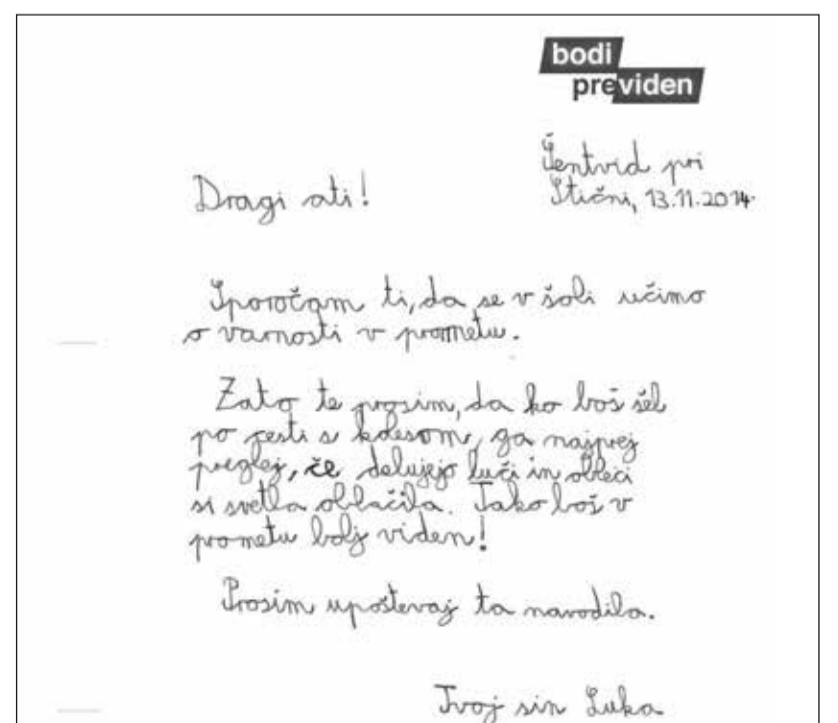 bodi
previden
Šentvid pri
Stični, 13.11.2014
Dragi ati!
Sporočam ti, da se v šoli učimo
o varnosti v prometu.
Zato te prosim, da ko boš šel
po cesti s kolesom, ga najprej
preglej, če delujejo luči in obleci
si svetla oblačila. Tako boš v
prometu bolj viden!
Prosim upoštevaj ta navodila.
Tvoj sin Luka